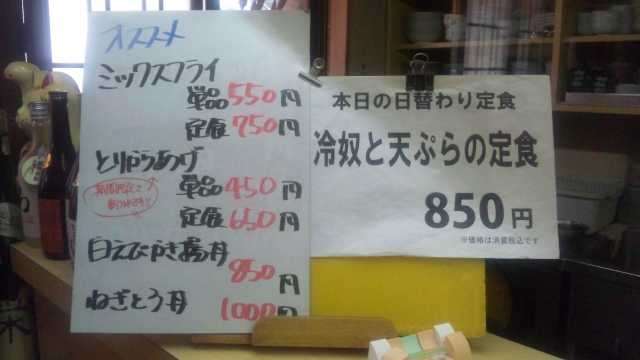 オススメ
ミックスフライ
単品550円
定食750円
とりからあげ
単品450円
定食650円
白えびかき揚丼
850円
ねぎとろ丼 1000円
本日の日替わり定食
冷奴と天ぷらの定食
850円
※価格は消費税込です